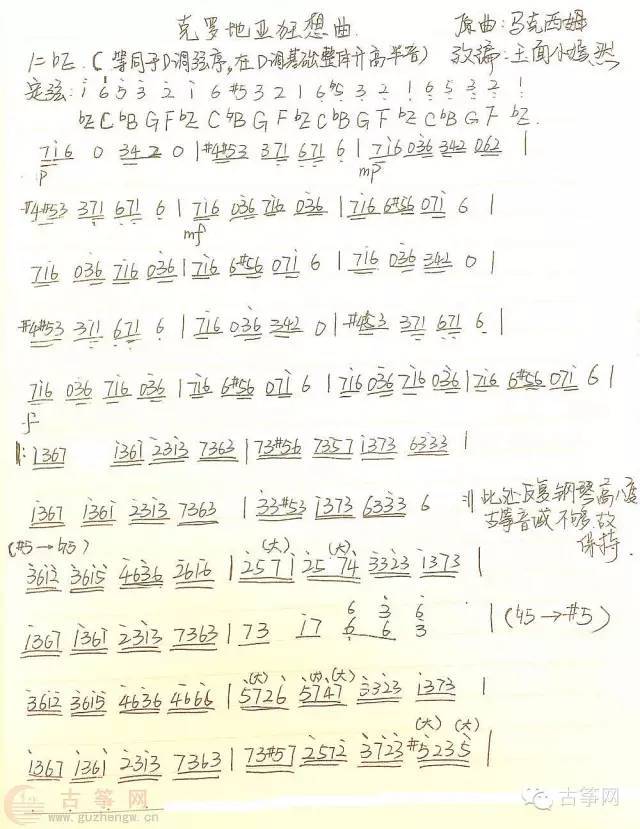 克罗地亚狂想曲
原曲:马克西姆
1=bE C(等同于D调弦序,在D调基础整体升高半音)
改编:玉面小嫣然
定弦: i 6 5 3 2 1 6 #5 3 2 1 6 5 3 2 1 6 5 3 2 1
bE C bB G F bE C bB G F bE C bB G F bE C bB G F bE
7i6 0 342 0 | #4#53 371 671 6 | 7i6 036 342 062 |
p mp
#4#53 371 671 6 | 7i6 036 7i6 036 | 7i6 6#56 07i 6 |
mf
7i6 036 7i6 036 | 7i6 6#56 07i 6 | 7i6 036 342 0 |
#4#53 371 671 6 | 7i6 036 342 0 | #4#53 371 671 6 |
7i6 036 7i6 036 | 7i6 6#56 07i 6 | 7i6 036 7i6 036 | 7i6 6#56 07i 6 |
f
|: i367 i36i 23i3 7363 | 73#56 7357 i373 6333 |
i367 i36i 23i3 7363 | 33#53 i373 6333 6 :| 此处反复钢琴高八度
古筝音域不够,故
保持.
(#5→♮5)
3612 3615 4636 2616 | 2571 2574 3323 i373 |
(大) (大)
i367 i36i 23i3 7363 | 73 i7 6 3 6 | (♮5→#5)
6 6 3
3612 3615 4636 4666 | 5726 5747 3323 i373 |
(大) (大) (大)
i367 i36i 23i3 7363 | 73#57 2572 3723 #5235 |
(大) (大)
古筝网
www.guzhengw.cn
古筝网